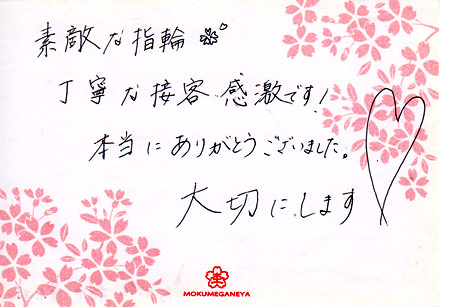 素敵な指輪
丁寧な接客 感激です!
本当にありがとうございました。
大切にします
MOKUMEGANEYA